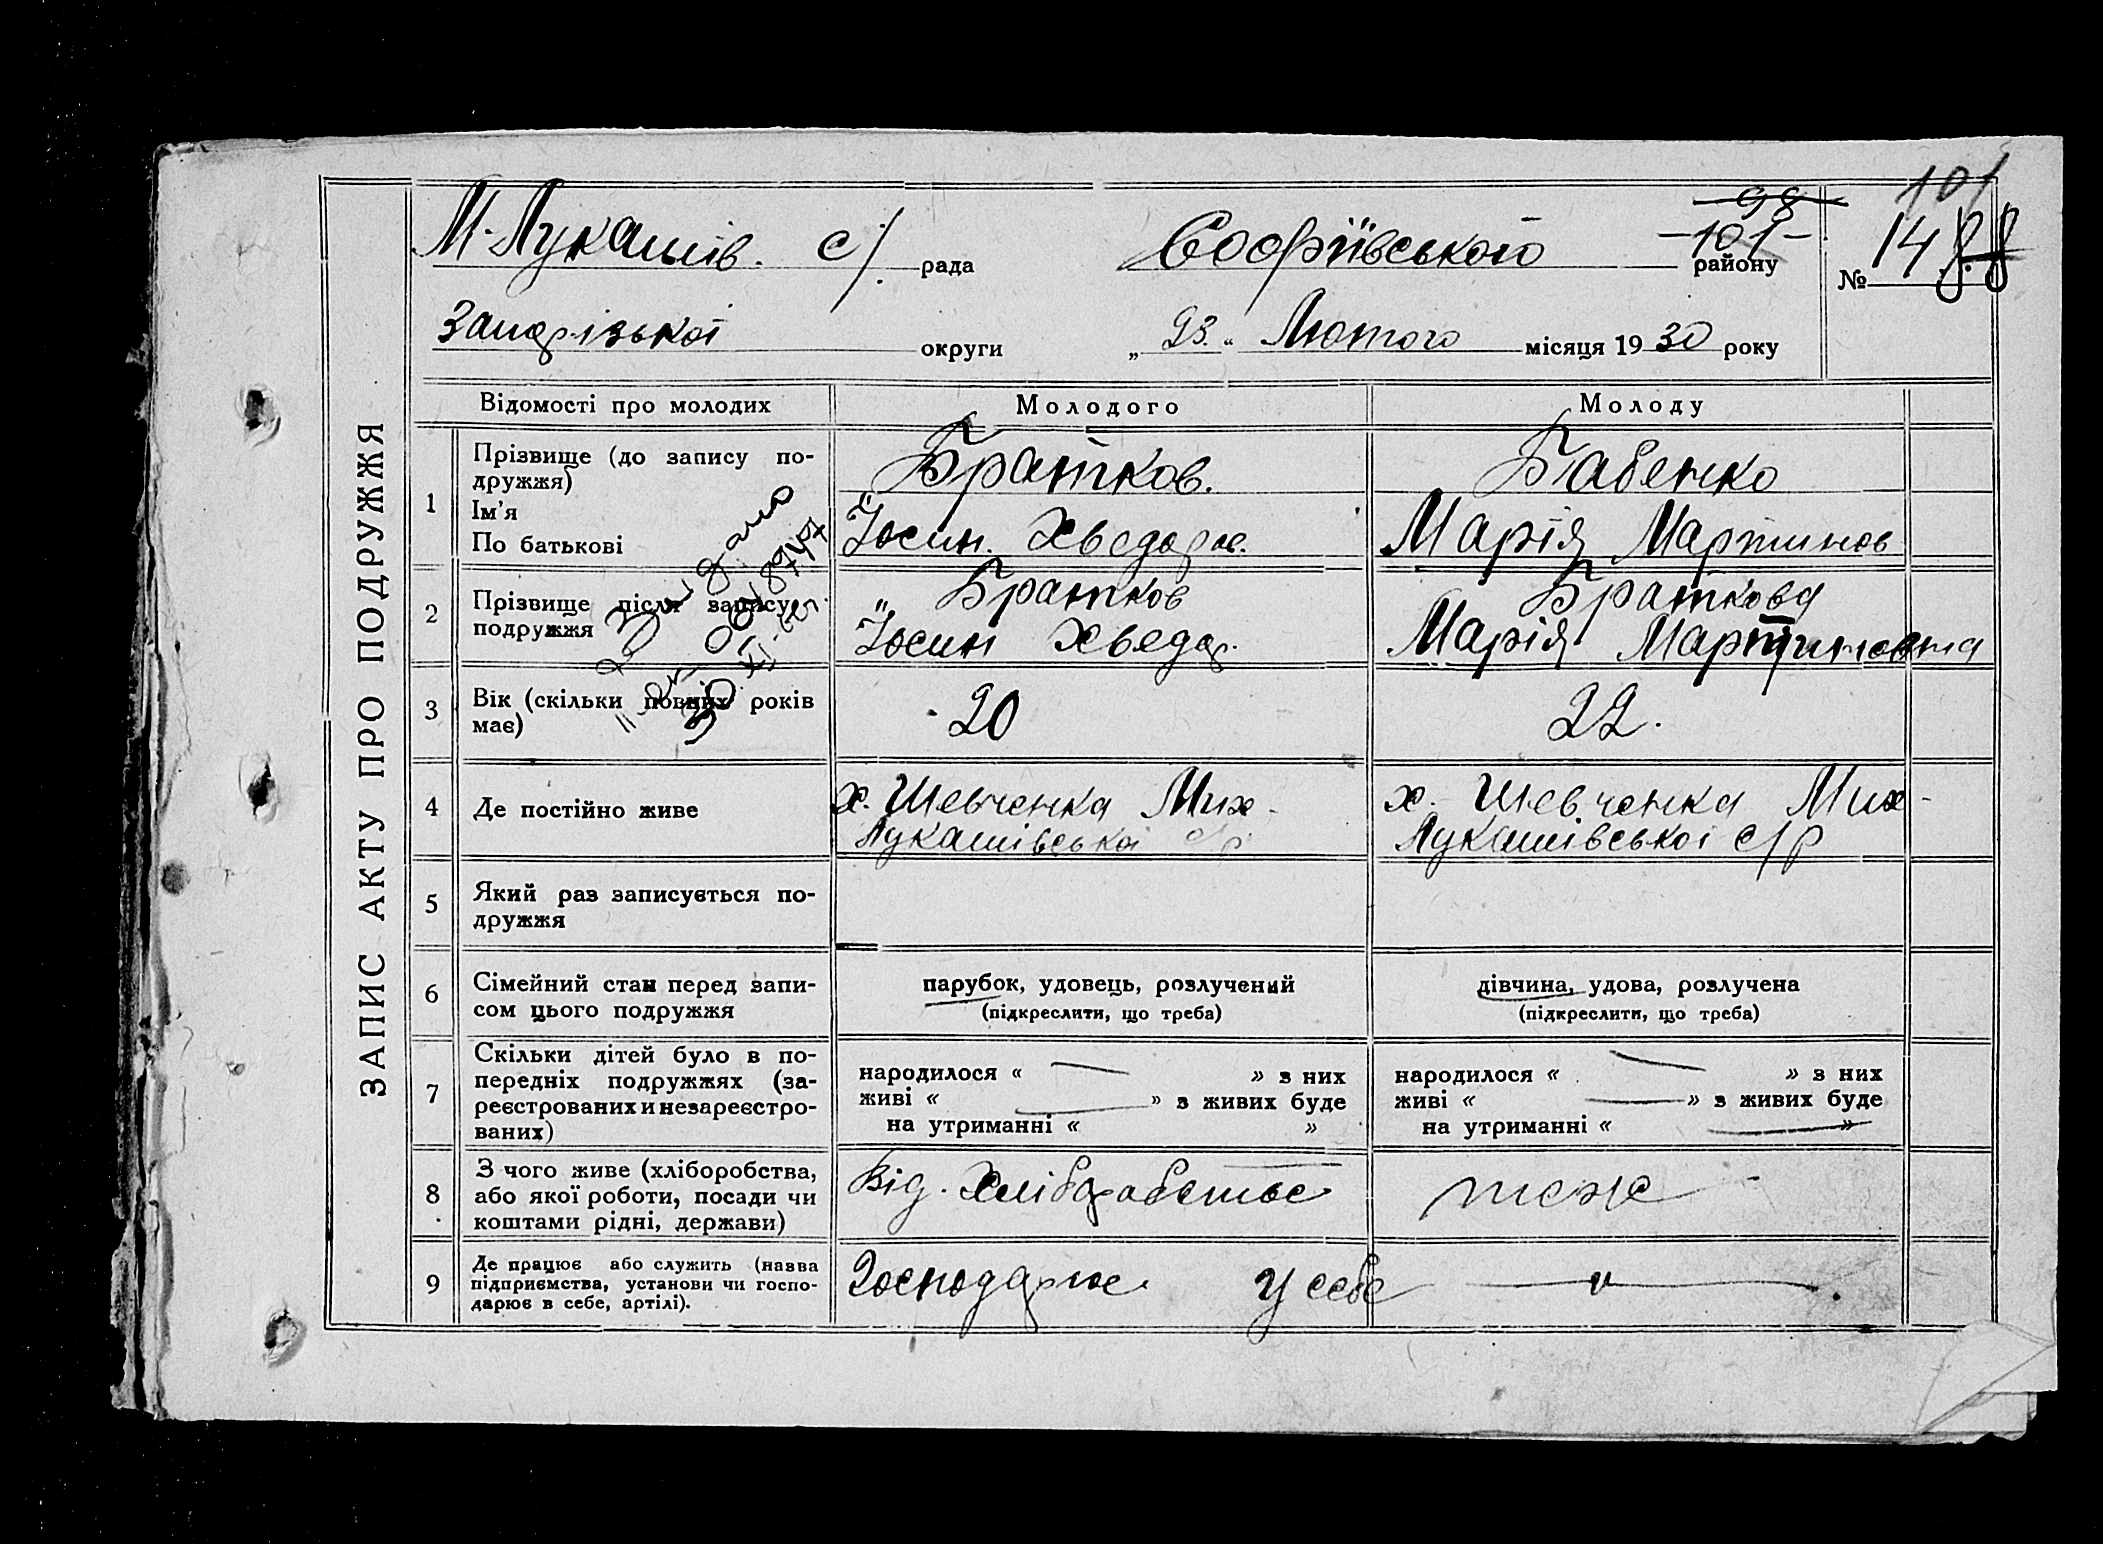 ЗАПИС АКТУ ПРО ПОДРУЖЖЯ
101
98
М-Лукашів. с/. рада Софіївського -101- району № 14
Запорізької округи „23.“ Лютого місяця 1930 року
Відомості про молодих Молодого Молоду
1 Прізвище (до запису по-
дружжя) Братков. Бабенко
Ім'я
По батькові Йосип. Хведоров. Марія Мартинов
Видано
2 Прізвище після запису
подружжя Братков Браткова
Йосип Хведор. Марія Мартиновна
3 Вік (скільки повних років
має) 20 22.
4 Де постійно живе х. Шевченка Мих- х. Шевченка Мих-
Лукашівської с/р Лукашівської с/р
5 Який раз записується по-
дружжя
6 Сімейний стан перед запи-
сом цього подружжя парубок, удовець, розлучений дівчина, удова, розлучена
(підкреслити, що треба) (підкреслити, що треба)
7 Скільки дітей було в по-
передніх подружжях (за-
реєстрованих и незареєстро-
ваних)
народилося « — » з них народилося « — » з них
живі « — » з живих буде живі « — » з живих буде
на утриманні « » на утриманні « — »
8 З чого живе (хліборобства,
або якої роботи, посади чи
коштами рідні, держави) Від. Хліборобства теж
9 Де працює або служить (назва
підприємства, установи чи госпо-
дарює в себе, артілі). Господарює у себе — " —.